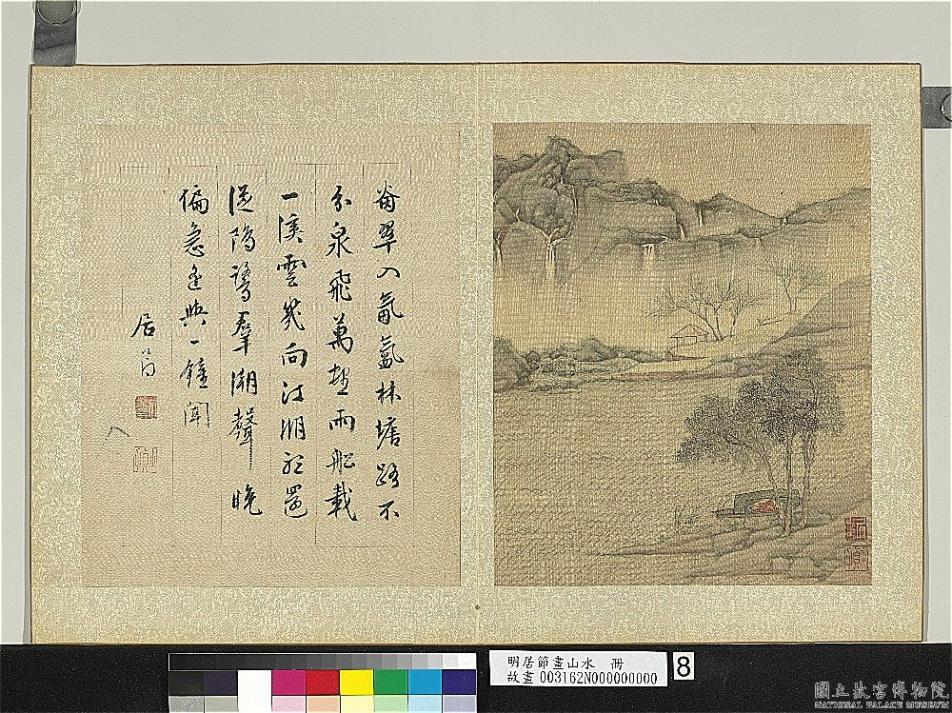 翠入氤氳林塘路不
分泉飛萬壑雨船載
一溪雲 向
從鷗鷺羣潮聲晚
偏急遙與一鐘聞
居節
八
明居節畫山水 冊
故畫003162N000000000
8
國立故宮博物院
NATIONAL PALACE MUSEUM